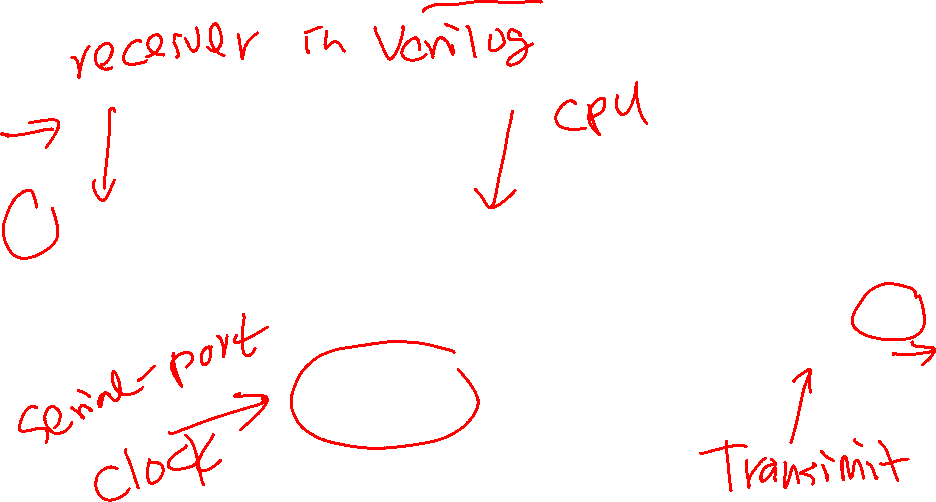 receiver in Verilog
CPU
serial-port
clock
Transimit